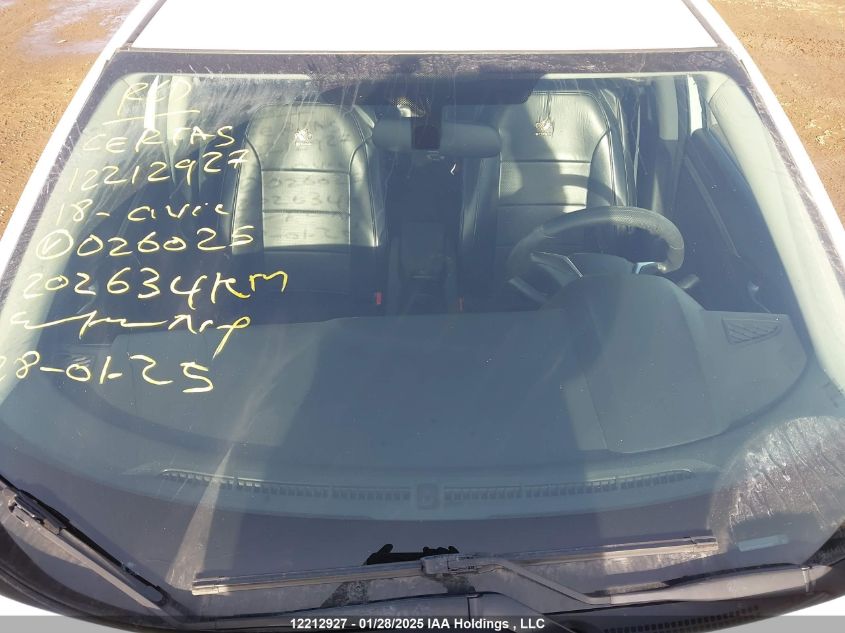 RCD
CERTAS
12212927
18-civic
026025
202634KM
28-01-25
12212927 - 01/28/2025 IAA Holdings , LLC